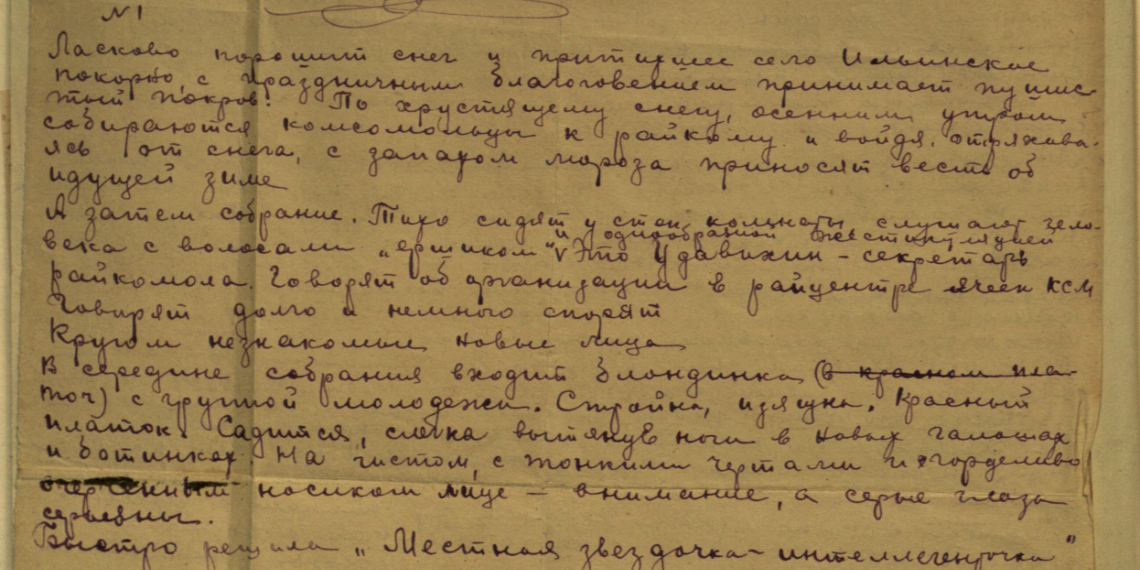 N 1
Ласково порошит снег и притихшее село Ильинское
покорно, с праздничным благоговением принимает пушис-
тый покров. По хрустящему снегу, осенним утром
собираются комсомольцы к райкому и войдя, отряхива-
ясь от снега, с запахом мороза приносят весть об
идущей зиме
А затем собрание. Тихо сидят у стен комнаты слушают чело-
века с волосами „ершиком" V Это Удавихин – секретарь
и однообразной жестикуляцией
райкомола. Говорят об организации в райцентре ячеек КСМ
Говорят долго и немного спорят
Кругом незнакомые новые лица
В середине собрания входит блондинка (в красном пла-
точ) с группой молодежи. Стройна, изящна. Красный
платок. Садится, слегка вытянув ноги в новых галошах
и ботинках. На чистом, с тонкими чертами и горделиво
очерченным носиком лице – внимание, а серые глаза
серьезны.
Быстро решила „Местная звездочка – интеллегенточка"